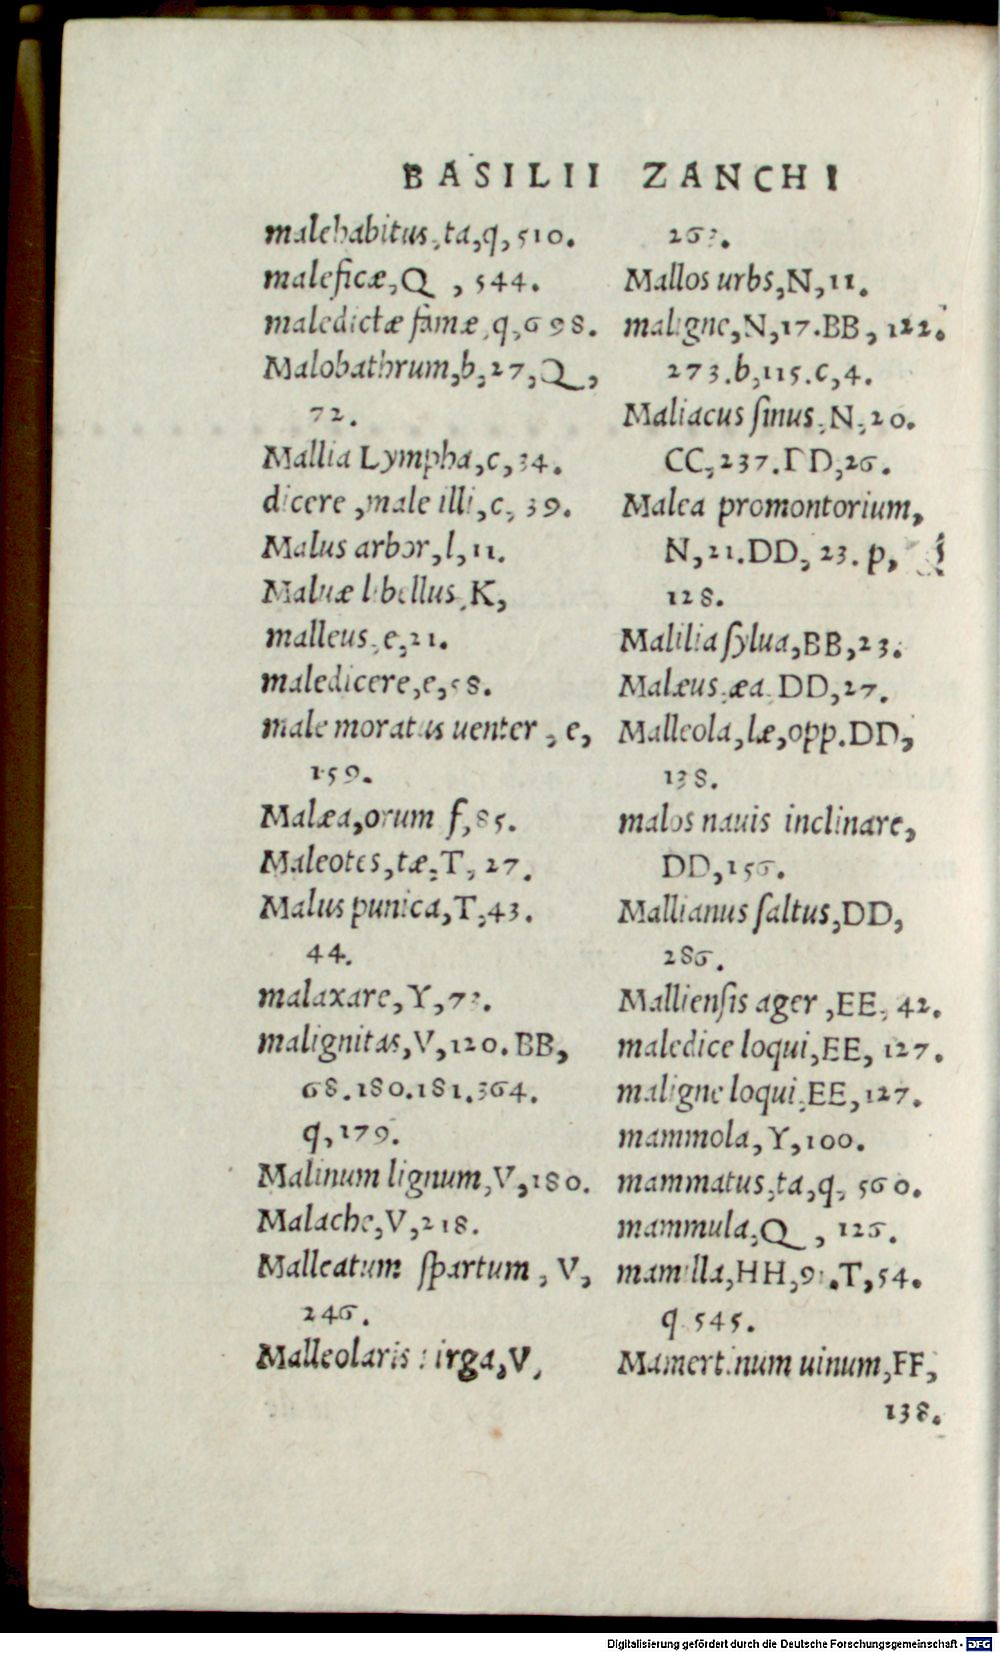 BASILII ZANCHI
malehabitus, ta, q, 510.
maleficæ, Q, 544.
maledictæ famæ, q, 698.
Malobathrum, b, 27, Q,
72.
Mallia Lympha, c, 34.
dicere, male illi, c, 39.
Malus arbor, l, 11.
Maluæ libellus, K,
malleus, e, 21.
maledicere, e, 58.
male moratus uenter, e,
159.
Malæa, orum f, 85.
Maleotes, tæ, T, 27.
Malus punica, T, 43.
44.
malaxare, Y, 73.
malignitas, V, 120. BB,
68. 180. 181. 364.
q, 179.
Malinum lignum, V, 180.
Malache, V, 218.
Malleatum ſpartum, V,
246.
Malleolaris uirga, V,
263.
Mallos urbs, N, 11.
maligne, N, 17. BB, 122.
273. b, 115. c, 4.
Maliacus ſinus, N, 20.
CC, 237. DD, 26.
Malea promontorium,
N, 21. DD, 23. p,
128.
Malilia ſylua, BB, 23.
Malæus, æa, DD, 27.
Malleola, læ, opp. DD,
138.
malos nauis inclinare,
DD, 156.
Mallianus ſaltus, DD,
286.
Mallienſis ager, EE, 42.
maledice loqui, EE, 127.
maligne loqui, EE, 127.
mammola, Y, 100.
mammatus, ta, q, 560.
mammula, Q, 126.
mamilla, HH, 91. T, 54.
q 545.
Mamertinum uinum, FF,
138.
Digitalisierung gefördert durch die Deutsche Forschungsgemeinschaft - DFG